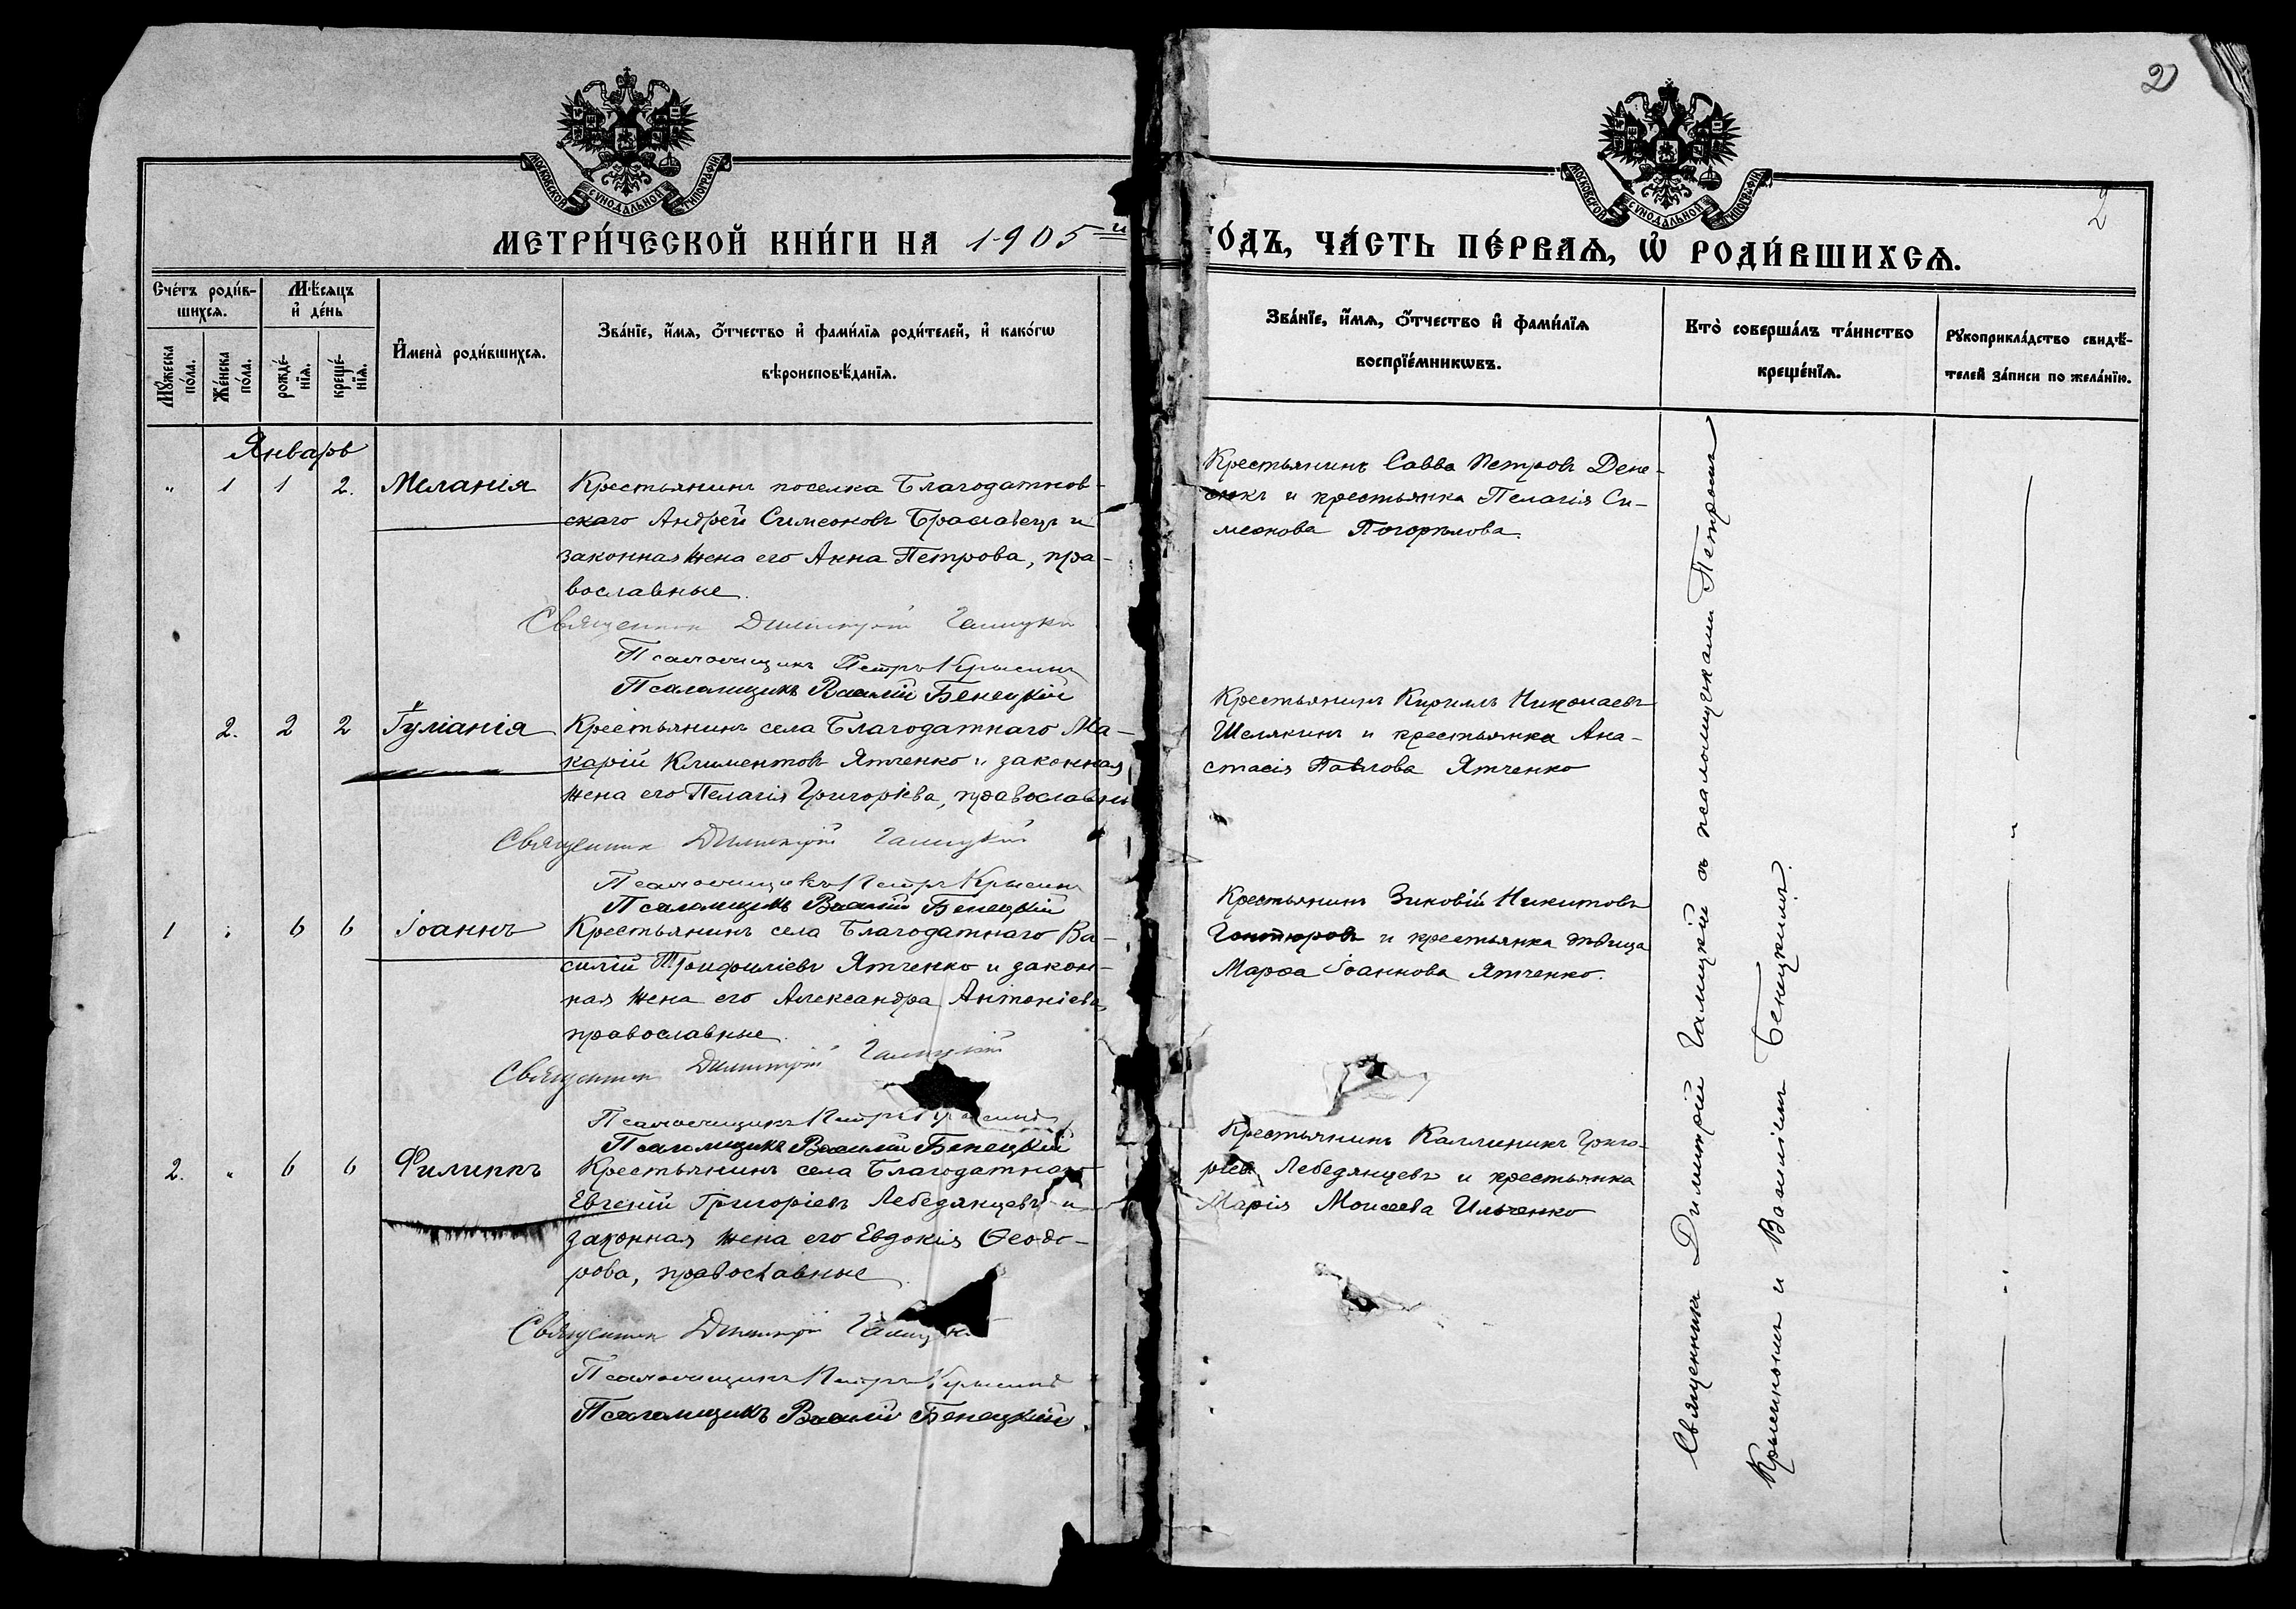 2
МОСКОВСКОЙ СѴНОДАЛЬНОЙ ТИПОГРАФІИ
МОСКОВСКОЙ СѴНОДАЛЬНОЙ ТИПОГРАФІИ
2
МЕТРИ́ЧЕСКОЙ КНИ́ГИ НА 1905й
ГО́ДЪ, ЧА́СТЬ ПЕ́РВАѦ, Ѡ҆ РОДИ́ВШИХСѦ.
Сче́тъ роди́в-
шихсѧ.
Мѣ́сѧцъ
и҆ де́нь
Мꙋ́жеска
по́ла.
Же́нска
по́ла.
рожде́-
нїѧ.
креще́-
нїѧ.
И҆мена̀ роди́вшихсѧ.
Зва́нїе, и҆́мѧ, ѻ҆́тчество и҆ фами́лїѧ роди́телей, и҆ како́гѡ
вѣроисповѣ́данїѧ.
Зва́нїе, и҆́мѧ, ѻ҆́тчество и҆ фами́лїѧ
воспрїе́мникѡвъ.
Кто̀ соверша́лъ та́инство
креще́нїѧ.
Рꙋкоприкла́дство свидѣ́-
телей за́писи по жела́нїю.
Январь
" 1 1 2. Меланія
Крестьянинъ поселка Благодатнов-
скаго Андрей Симеоновъ Браславецъ и
законная жена его Анна Петрова, пра-
вославные.
Священник Димитрій Галицкій
Псаломщикъ Петръ Крысинъ
Псаломщикъ Василій Бенецкій
Крестьянинъ Савва Петровъ Дене-
сюкъ и крестьянка Пелагія Си-
меонова Погорѣлова.
2. 2 2 Іуліанія
Крестьянинъ села Благодатнаго Ма-
карій Климентовъ Ятченко и законная
жена его Пелагія Григоріева, православны
Священник Димитрій Галицкій
Псаломщикъ Петръ Крысинъ
Псаломщикъ Василій Бенецкій
Крестьянинъ Кириллъ Николаевъ
Шелякинъ и крестьянка Ана-
стасія Павлова Ятченко
1 " 6 6 Іоаннъ
Крестьянинъ села Благодатнаго Ва-
силій Трифиліевъ Ятченко и закон-
ная жена его Александра Антоніева,
православные.
Священник Димитрій Галицкій
Псаломщикъ Петръ Крысинъ
Псаломщикъ Василій Бенецкій
Крестьянинъ Зиновій Никитовъ
Гонтюровъ и крестьянка дѣвица
Марѳа Іоаннова Ятченко.
2. " 6 6 Филиппъ
Крестьянинъ села Благодатнаго
Евгеній Григоріевъ Лебедянцевъ и
законная жена его Евдокія Ѳеодо-
рова, православные
Священник Димитрій Галицкій
Псаломщикъ Петръ Крысинъ
Псаломщикъ Василій Бенецкій.
Крестьянинъ Каллиникъ Григо-
ріевъ Лебедянцевъ и крестьянка
Марія Моисеева Ильченко
Священникъ Димитрій Галицкій съ псаломщиками Петромъ
Крысинымъ и Василіемъ Бенецкимъ.